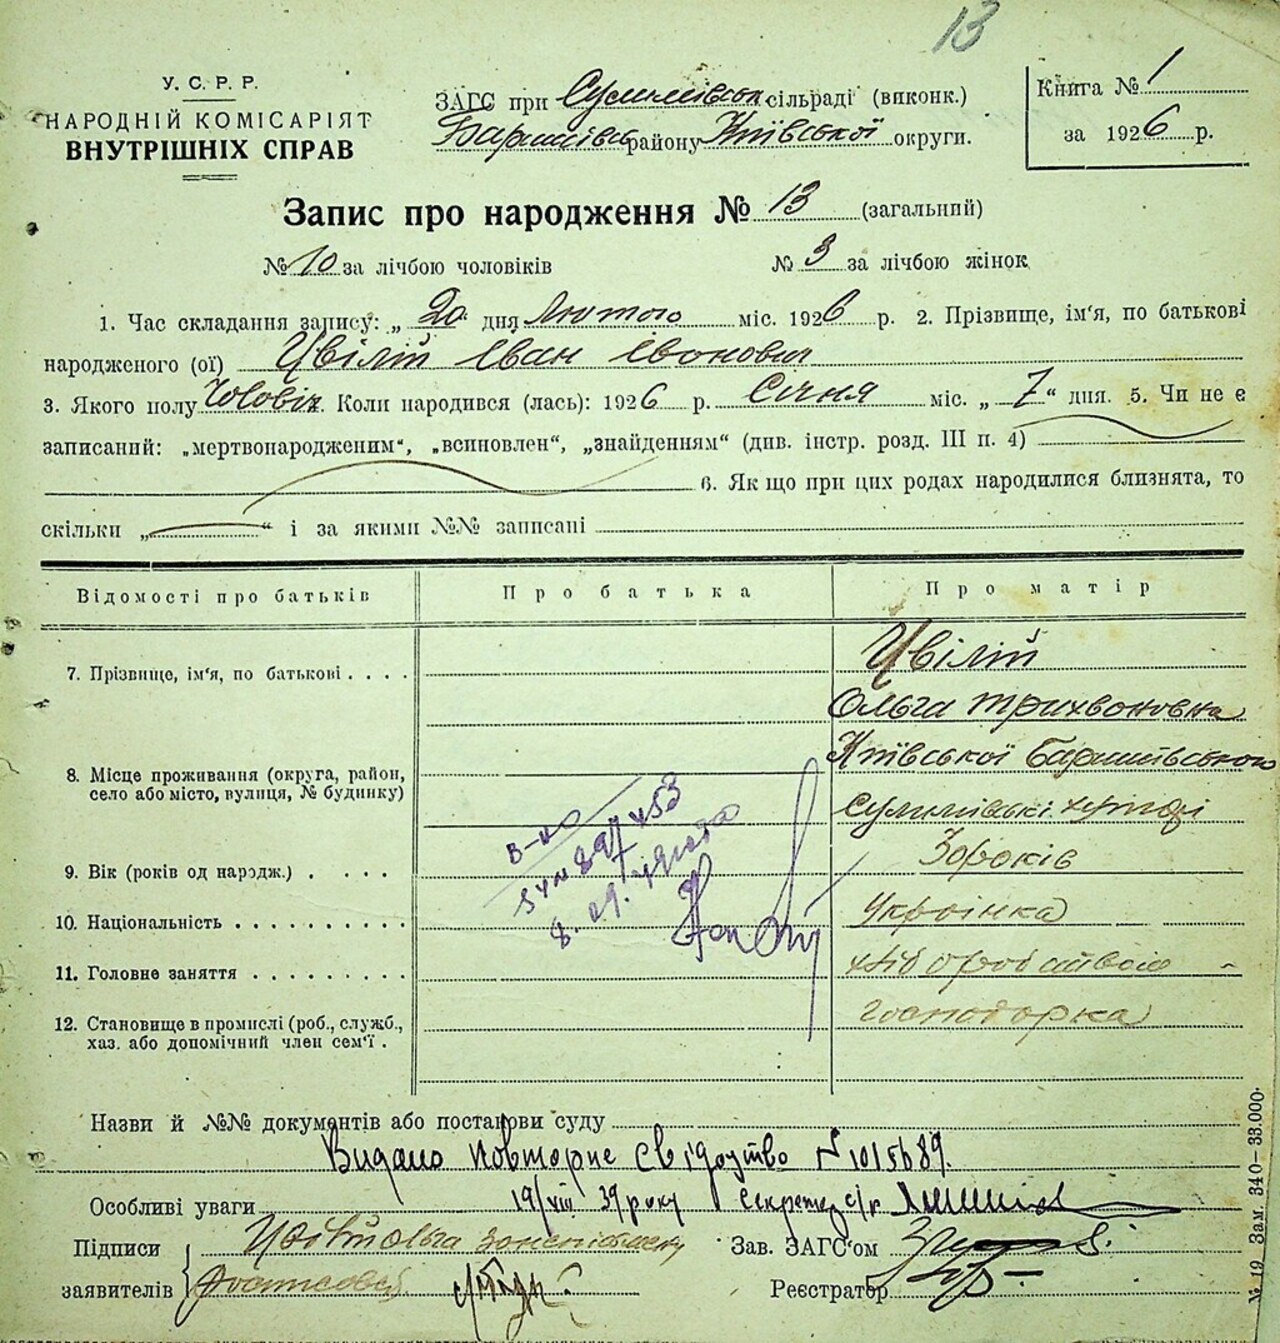 13
У. С. Р. Р.
НАРОДНІЙ КОМІСАРІЯТ
ВНУТРІШНІХ СПРАВ
ЗАГС при Сулимівськ сільраді (виконк.)
Баришівсь району Київської округи.
Книга № 1
за 1926 р.
Запис про народження № 13 (загальний)
№ 10 за лічбою чоловіків № 3 за лічбою жінок
1. Час складання запису: „ 20 дня Лютого міс. 1926 р. 2. Прізвище, ім'я, по батькові
народженого (ої) Цвілій Іван Івонович
3. Якого полу Чоловіч. Коли народився (лась): 1926 р. Січня міс. „ 7 “ дня. 5. Чи не є
записаний: „мертвонародженим“, „всиновлен“, „знайденням“ (див. інстр. розд. III п. 4)
6. Як що при цих родах народилися близнята, то
скільки „ “ і за якими №№ записані
Відомості про батьків Про батька Про матір
7. Прізвище, ім'я, по батькові . . . . Цвілій
Ольга Трихвоновна
8. Місце проживання (округа, район,
село або місто, вулиця, № будинку)
Київської Баришівського
Сулимівські хуторі
9. Вік (років од народж.) . . . . 30 років
10. Національність . . . . . . . . . . Українка
11. Головне заняття . . . . . . . . хліборобством
12. Становище в промислі (роб., служб.,
хаз. або допомічний член сем'ї .
господорка
8. 09.
Назви й №№ документів або постанови суду
Видано повторне свідоцтво № 1015689.
Особливі уваги 19/VIII 39 року Секретар с/р
Підписи
заявителів
Цвілій Ольга
Зав. ЗАГС'ом
Реєстратор
№ 19 Зам. 340—33.000.